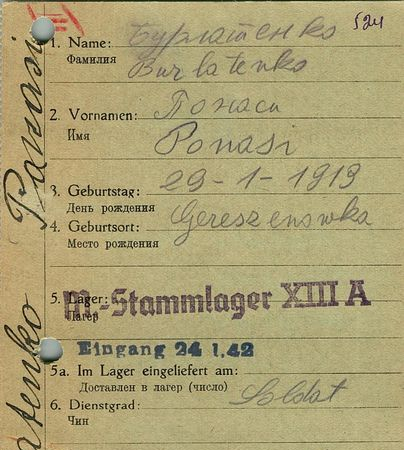 524
1. Name: Бурлатенко
Фамилия Burlatenko
2. Vornamen: Понаси
Имя Ponasi
3. Geburtstag: 29-1-1919
День рождения
4. Geburtsort: Gereszenowka
Место рождения
5. Lager: M.-Stammlager XIII A
Лагерь
Eingang 24 1.42
5a. Im Lager eingeliefert am:
Доставлен в лагерь (число)
6. Dienstgrad: Soldat
Чин
atenko Panasi